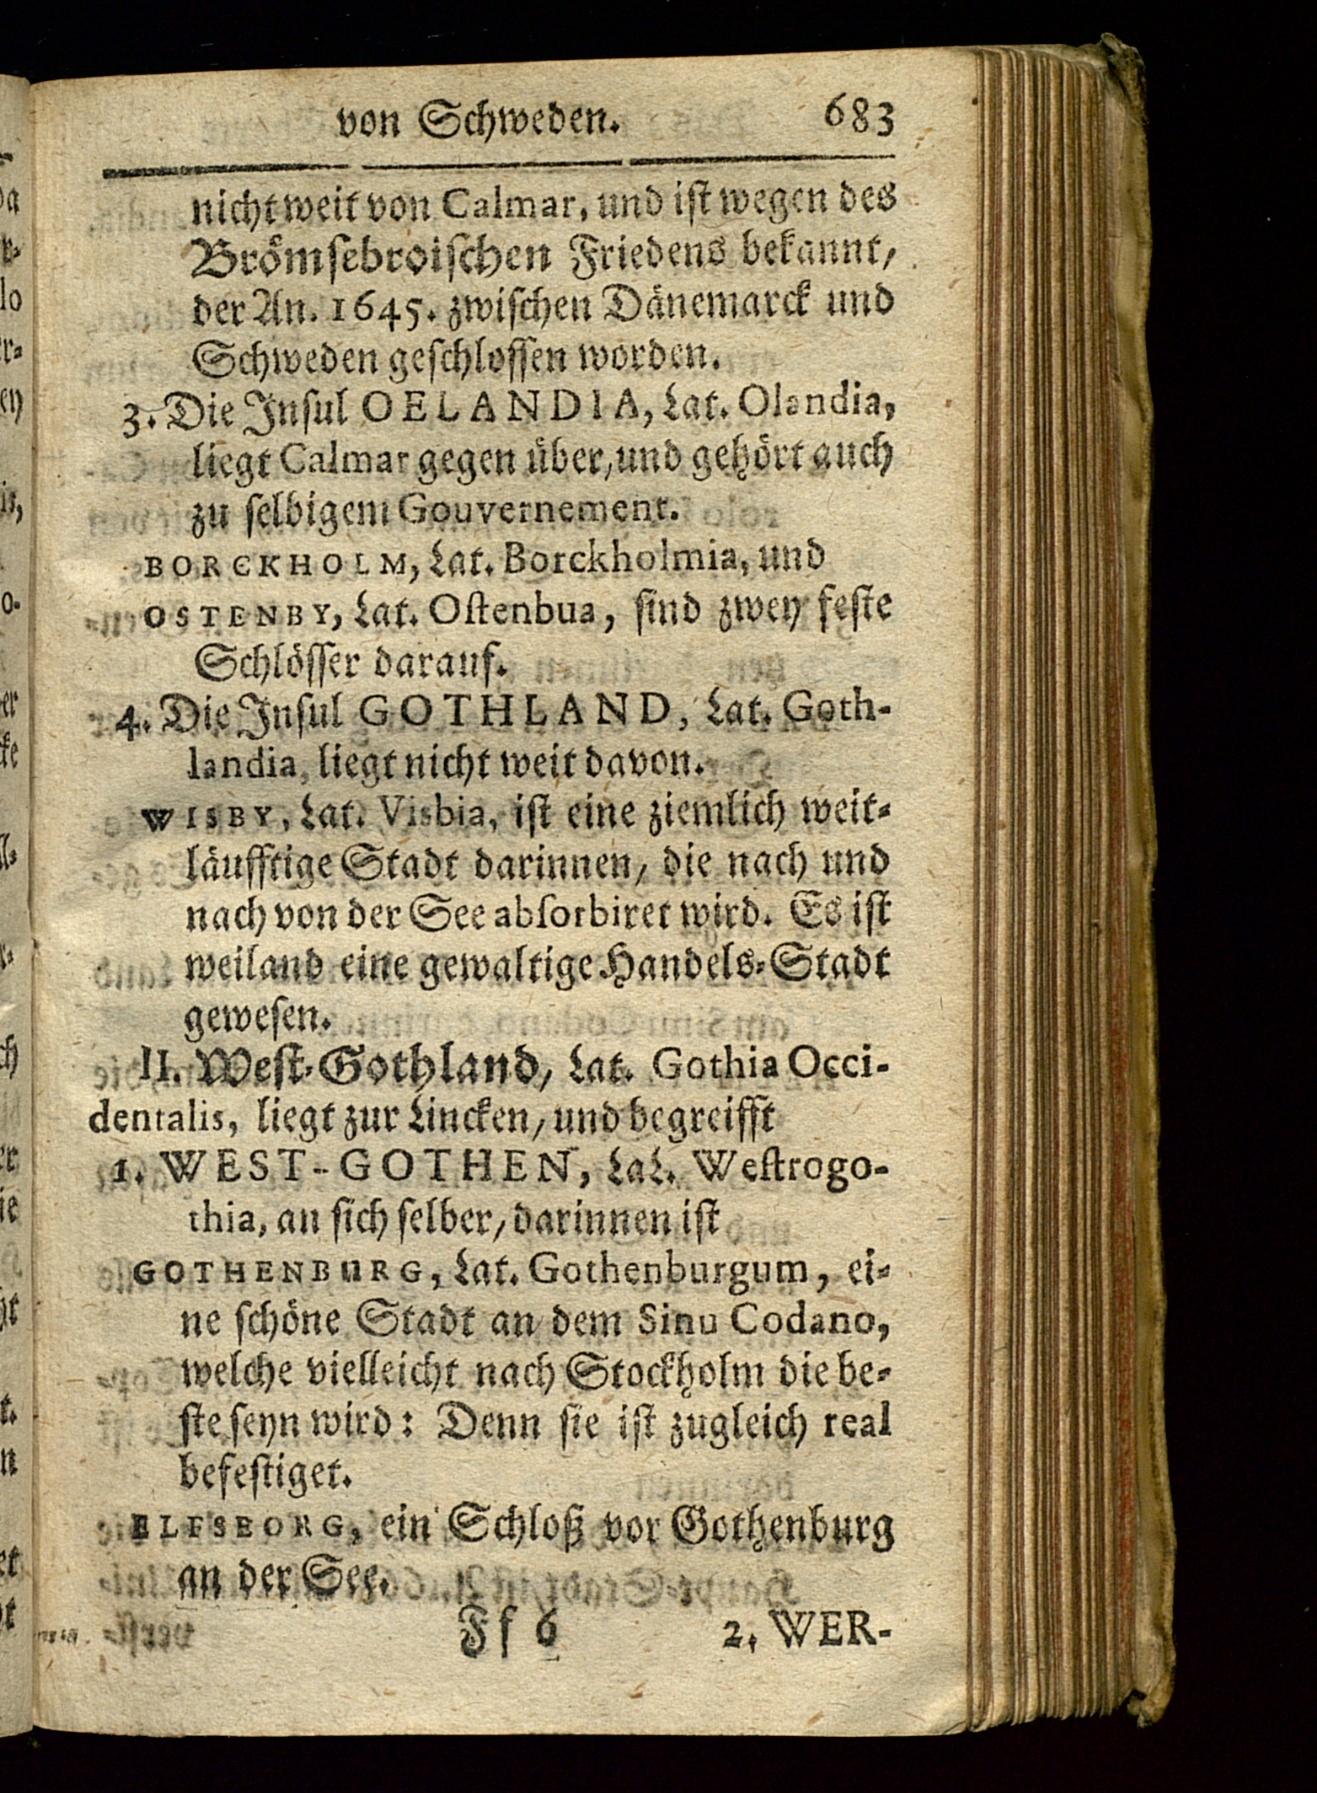 von Schweden. 683
nicht weit von Calmar, und ist wegen des
Brömsebroischen Friedens bekannt/
der An. 1645. zwischen Dänemarck und
Schweden geschlossen worden.
3. Die Insul OELANDIA, Lat. Olandia,
liegt Calmar gegen über/ und gehört auch
zu selbigem Gouvernement.
BORCKHOLM, Lat. Borckholmia, und
OSTENBY, Lat. Ostenbua, sind zwey feste
Schlösser darauf.
4. Die Insul GOTHLAND, Lat. Goth-
landia, liegt nicht weit davon.
WISBY, Lat. Visbia, ist eine ziemlich weit-
läufftige Stadt darinnen/ die nach und
nach von der See absorbiret wird. Es ist
weiland eine gewaltige Handels-Stadt
gewesen.
II. West-Gothland/ Lat. Gothia Occi-
dentalis, liegt zur Lincken/ und begreifft
1. WEST-GOTHEN, Lat. Westrogo-
thia, an sich selber/ darinnen ist
GOTHENBURG, Lat. Gothenburgum, ei-
ne schöne Stadt an dem Sinu Codano,
welche vielleicht nach Stockholm die be-
ste seyn wird: Denn sie ist zugleich real
befestiget.
ELFSBORG, ein Schloß vor Gothenburg
an der See.
Ff 6 2. WER-